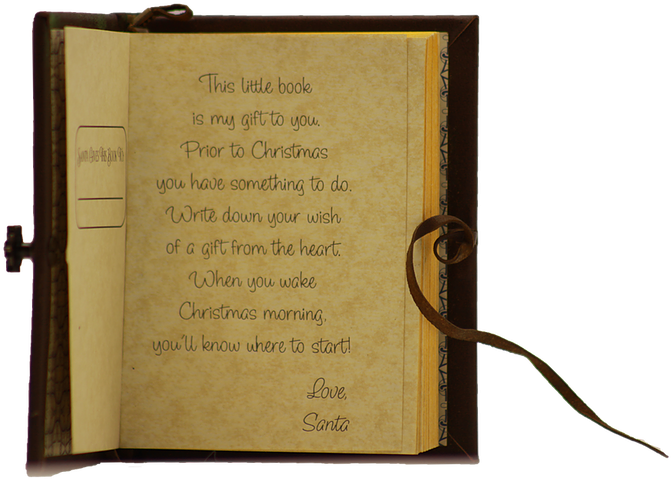 This little book
is my gift to you.
Prior to Christmas
you have something to do.
Write down your wish
of a gift from the heart.
When you wake
Christmas morning,
you'll know where to start!
Love,
Santa